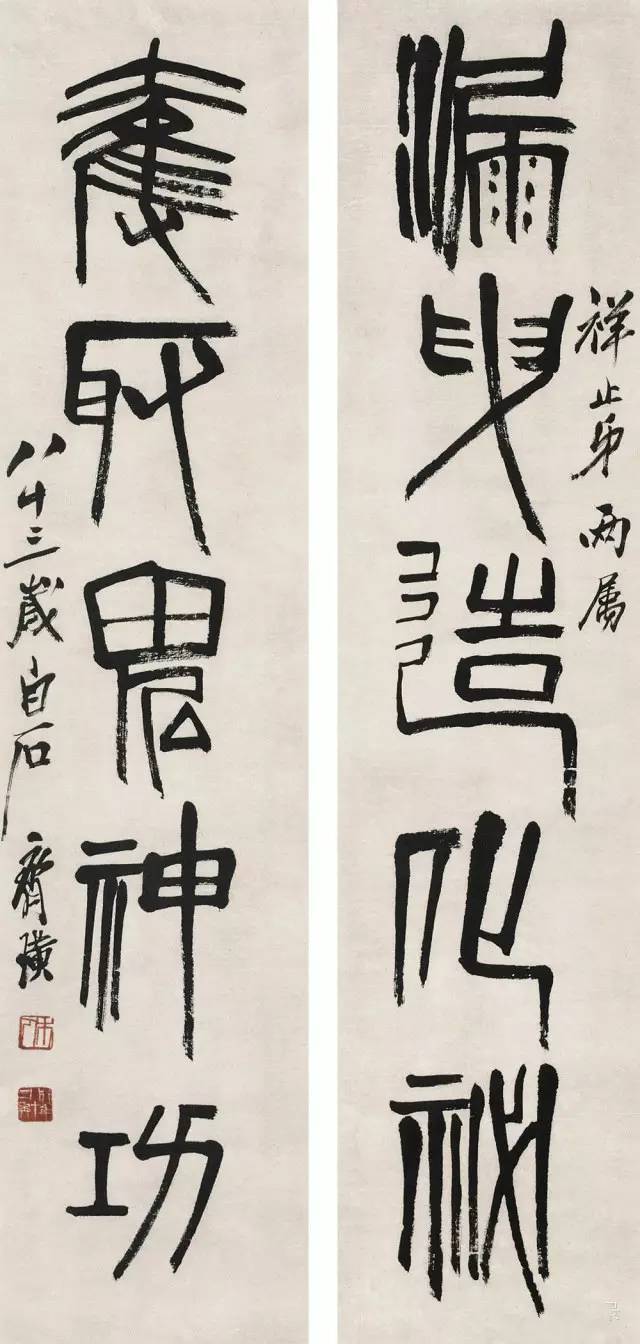 漏曳造化秘
祥止弟兩屬
奪取鬼神功
八十三歲白石齊璜